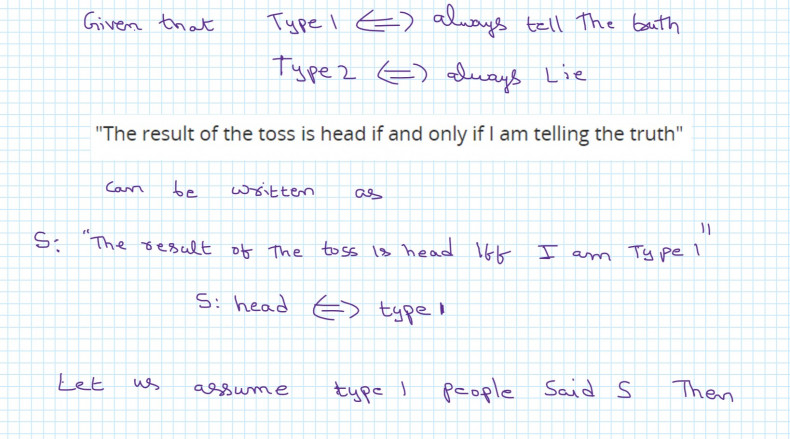 Given that Type 1 <=> always tell The truth
Type 2 <=> always Lie
"The result of the toss is head if and only if I am telling the truth"
Can be written as
S: "The result of The toss is head iff I am Type 1"
S: head <=> type 1
Let us assume type 1 people Said S Then